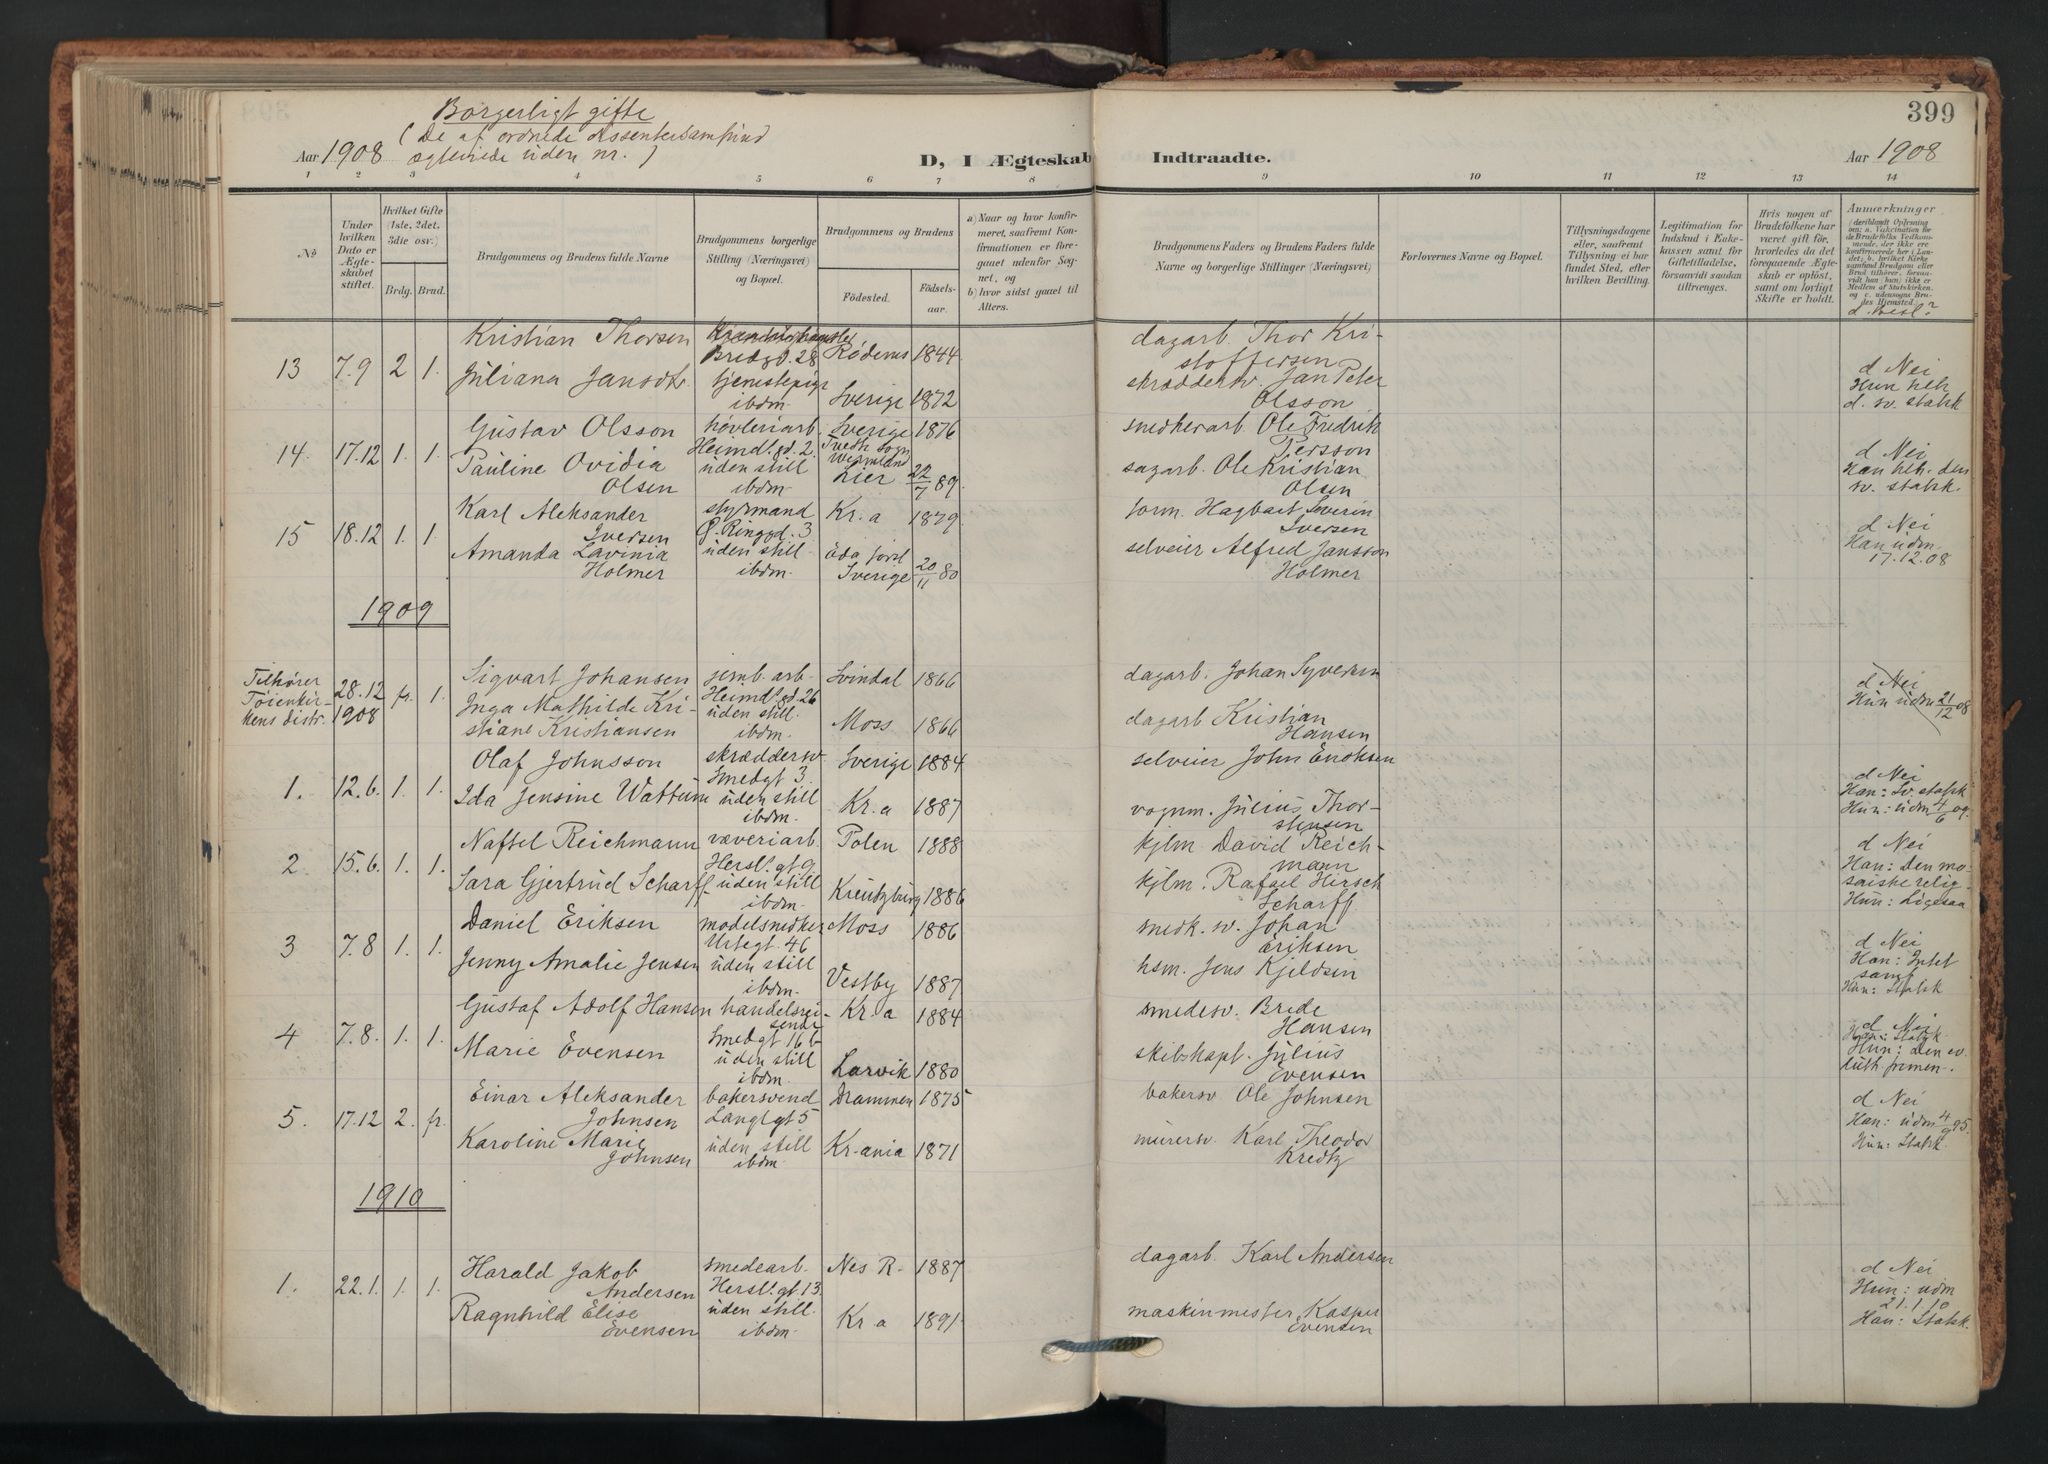 Borgerligt gifte
(De af ordnede dissentersamfund
ægteviede uden nr.)
Aar 1908
D, I Ægteskab
Indtraadte.
Aar 1908
399
1 2 3 4 5 6 7 8 9 10 11 12 13 14
No
Under hvilken Dato er Ægteskabet stiftet.
Hvilket Gifte (1ste, 2det, 3die osv.)
Brdg. Brud.
Brudgommens og Brudens fulde Navne
Brudgommens borgerlige Stilling (Næringsvei) og Bopæl.
Brudgommens og Brudens
Födested.
Födselsaar.
a) Naar og hvor konfirmeret, saafremt Konfirmationen er foregaaet udenfor Sognet, og
b) hvor sidst gaaet til Alters.
Brudgommens Faders og Brudens Faders fulde Navne og borgerlige Stillinger (Næringsvei)
Forlovernes Navne og Bopæl.
Tillysningsdagene eller, saafremt Tillysning ei har fundet Sted, efter hvilken Bevilling.
Legitimation for Indskud i Enkekassen samt for Giftetilladelse, forsaavidt saadan tiltrænges.
Hvis nogen af Brudefolkene har været gift før, hvorledes da det foregaaende Ægteskab er opløst, samt om lovligt Skifte er holdt.
Anmærkninger
d. Besl?
13 7.9 2 1.
Kristian Thorsen
Bredgd. 28 Rødenes 1844
dagarb. Thor Kristoffersen
Juliana Jansdtr.
tjenestepige ibdm. Sverige 1872
skræddersv. Jan Peter Olsson
d Nei
Hun
d. sv. statsk
14. 17.12 1. 1.
Gustav Olsson
høvleriarb. Heimd.gd. 2. Sverige 1876
Wermland
snedkerarb Ole Fredrik Persson
Pauline Ovidia Olsen
uden still ibdm. Lier 22/7 89.
sagarb. Ole Kristian Olsen
d Nei
Han den
sv. statsk.
15 18.12 1. 1.
Karl Aleksander Iversen
styrmand G. Ringgd. 3 Kr.a 1879
form. Hagbart Severin Iversen
Amanda Lavinia Holmer
uden still. ibdm. Sverige 20/11 80
selveier Alfred Jansson Holmer
d Nei
Han udm.
17.12.08
1909
Tilhører Tøienkirkens distr. 28.12 1908 fr. 1.
Sigvart Johansen
Heimd.gd. 26 Svindal 1866
dagarb. Johan Syversen
Inga Mathilde Kristiane Kristiansen
uden still. ibdm. Moss 1866
dagarb Kristian Hansen
d Nei
Hun udm 21/12 08
1. 12.6. 1. 1.
Olaf Johnsson
skræddersv Smedgt 3. Sverige 1884
selveier John Enoksen
Ida Jensine Wattum
uden still ibdm. Kr.a 1887
vognm. Julius Thorstensen
d Nei
Han: Sv. statsk
Hun: udm 4/6 09.
2. 15.6. 1. 1.
Naftel Reichmann
væveriarb. Hersl.gt 9 Polen 1888
kjlm David Reichmann
Sara Gjertrud Scharff
uden still ibdm. Kreutzburg 1886
kjlm. Rafael Hirsch Scharff
d Nei
Han: Den mosaiske relig.
Hun: Ligesaa
3 7.8 1. 1.
Daniel Eriksen
modelsnedker Urtegt. 46 Moss 1886
snedk. sv. Johan Eriksen
Jenny Amalie Jensen
uden still ibdm. Vestby 1887
hsm. Jens Kjeldsen
d Nei
Han: Intet samf
Hun: Statsk
4 7.8. 1. 1.
Gustaf Adolf Hansen
handelsreisende Smedgt 16 b Kr.a 1884
smedesv. Brede Hansen
Marie Evensen
uden still ibdm. Larvik 1880
skibskapt. Julius Evensen
d Nei
Han: Statsk.
Hun: Den ev.
luth frimen.
5. 17.12 2. fr.
Einar Aleksander Johnsen
bakersvend Langl.gt 5 Drammen 1875
bakersv Ole Johnsen
Karoline Marie Johnsen
uden still ibdm. Kr.ania 1871
murersv. Karl Theodor Kredtz
d Nei
Han: udm 4/9 95.
Hun: Statsk.
1910
1. 22.1. 1. 1.
Harald Jakob Andersen
smedearb. Hersl.gt 13. Nes R. 1887
dagarb. Karl Andersen
Ragnhild Elise Evensen
uden still. ibdm. Kr.a 1891.
maskinmester Kasper Evensen
d Nei
Hun: udm
21.1.10
Han: Statsk.